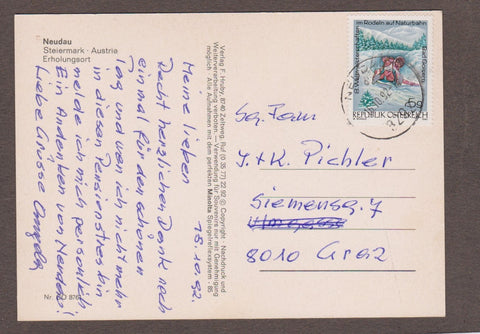 Neudau
Steiermark · Austria
Erholungsort
Meine lieben
15.10.92.
Recht herzlichen Dank noch
einmal für den schönen
Tag und wen ich nicht mehr
in diesen Pensienstress bin
melde ich mich persönlich
Ein Andenken von Neudau!
Liebe Grüsse
Nr.
Verlag F. Huby, 8740 Zeltweg, Ruf (0 35 77) 22 92 © Copyright. Nachdruck und
Weiterverarbeitung verboten – Verwendung für Souvenirs nur mit Genehmigung
möglich · Alle Aufnahmen mit dem perfekten Mamiya Spiegelreflexsystem · 85
im Rodeln auf Naturbahn
Bad Goisern
5 S
REPUBLIK ÖSTERREICH
Sg. Fam
J. + K. Pichler
Siemensg. 7
8010 Graz